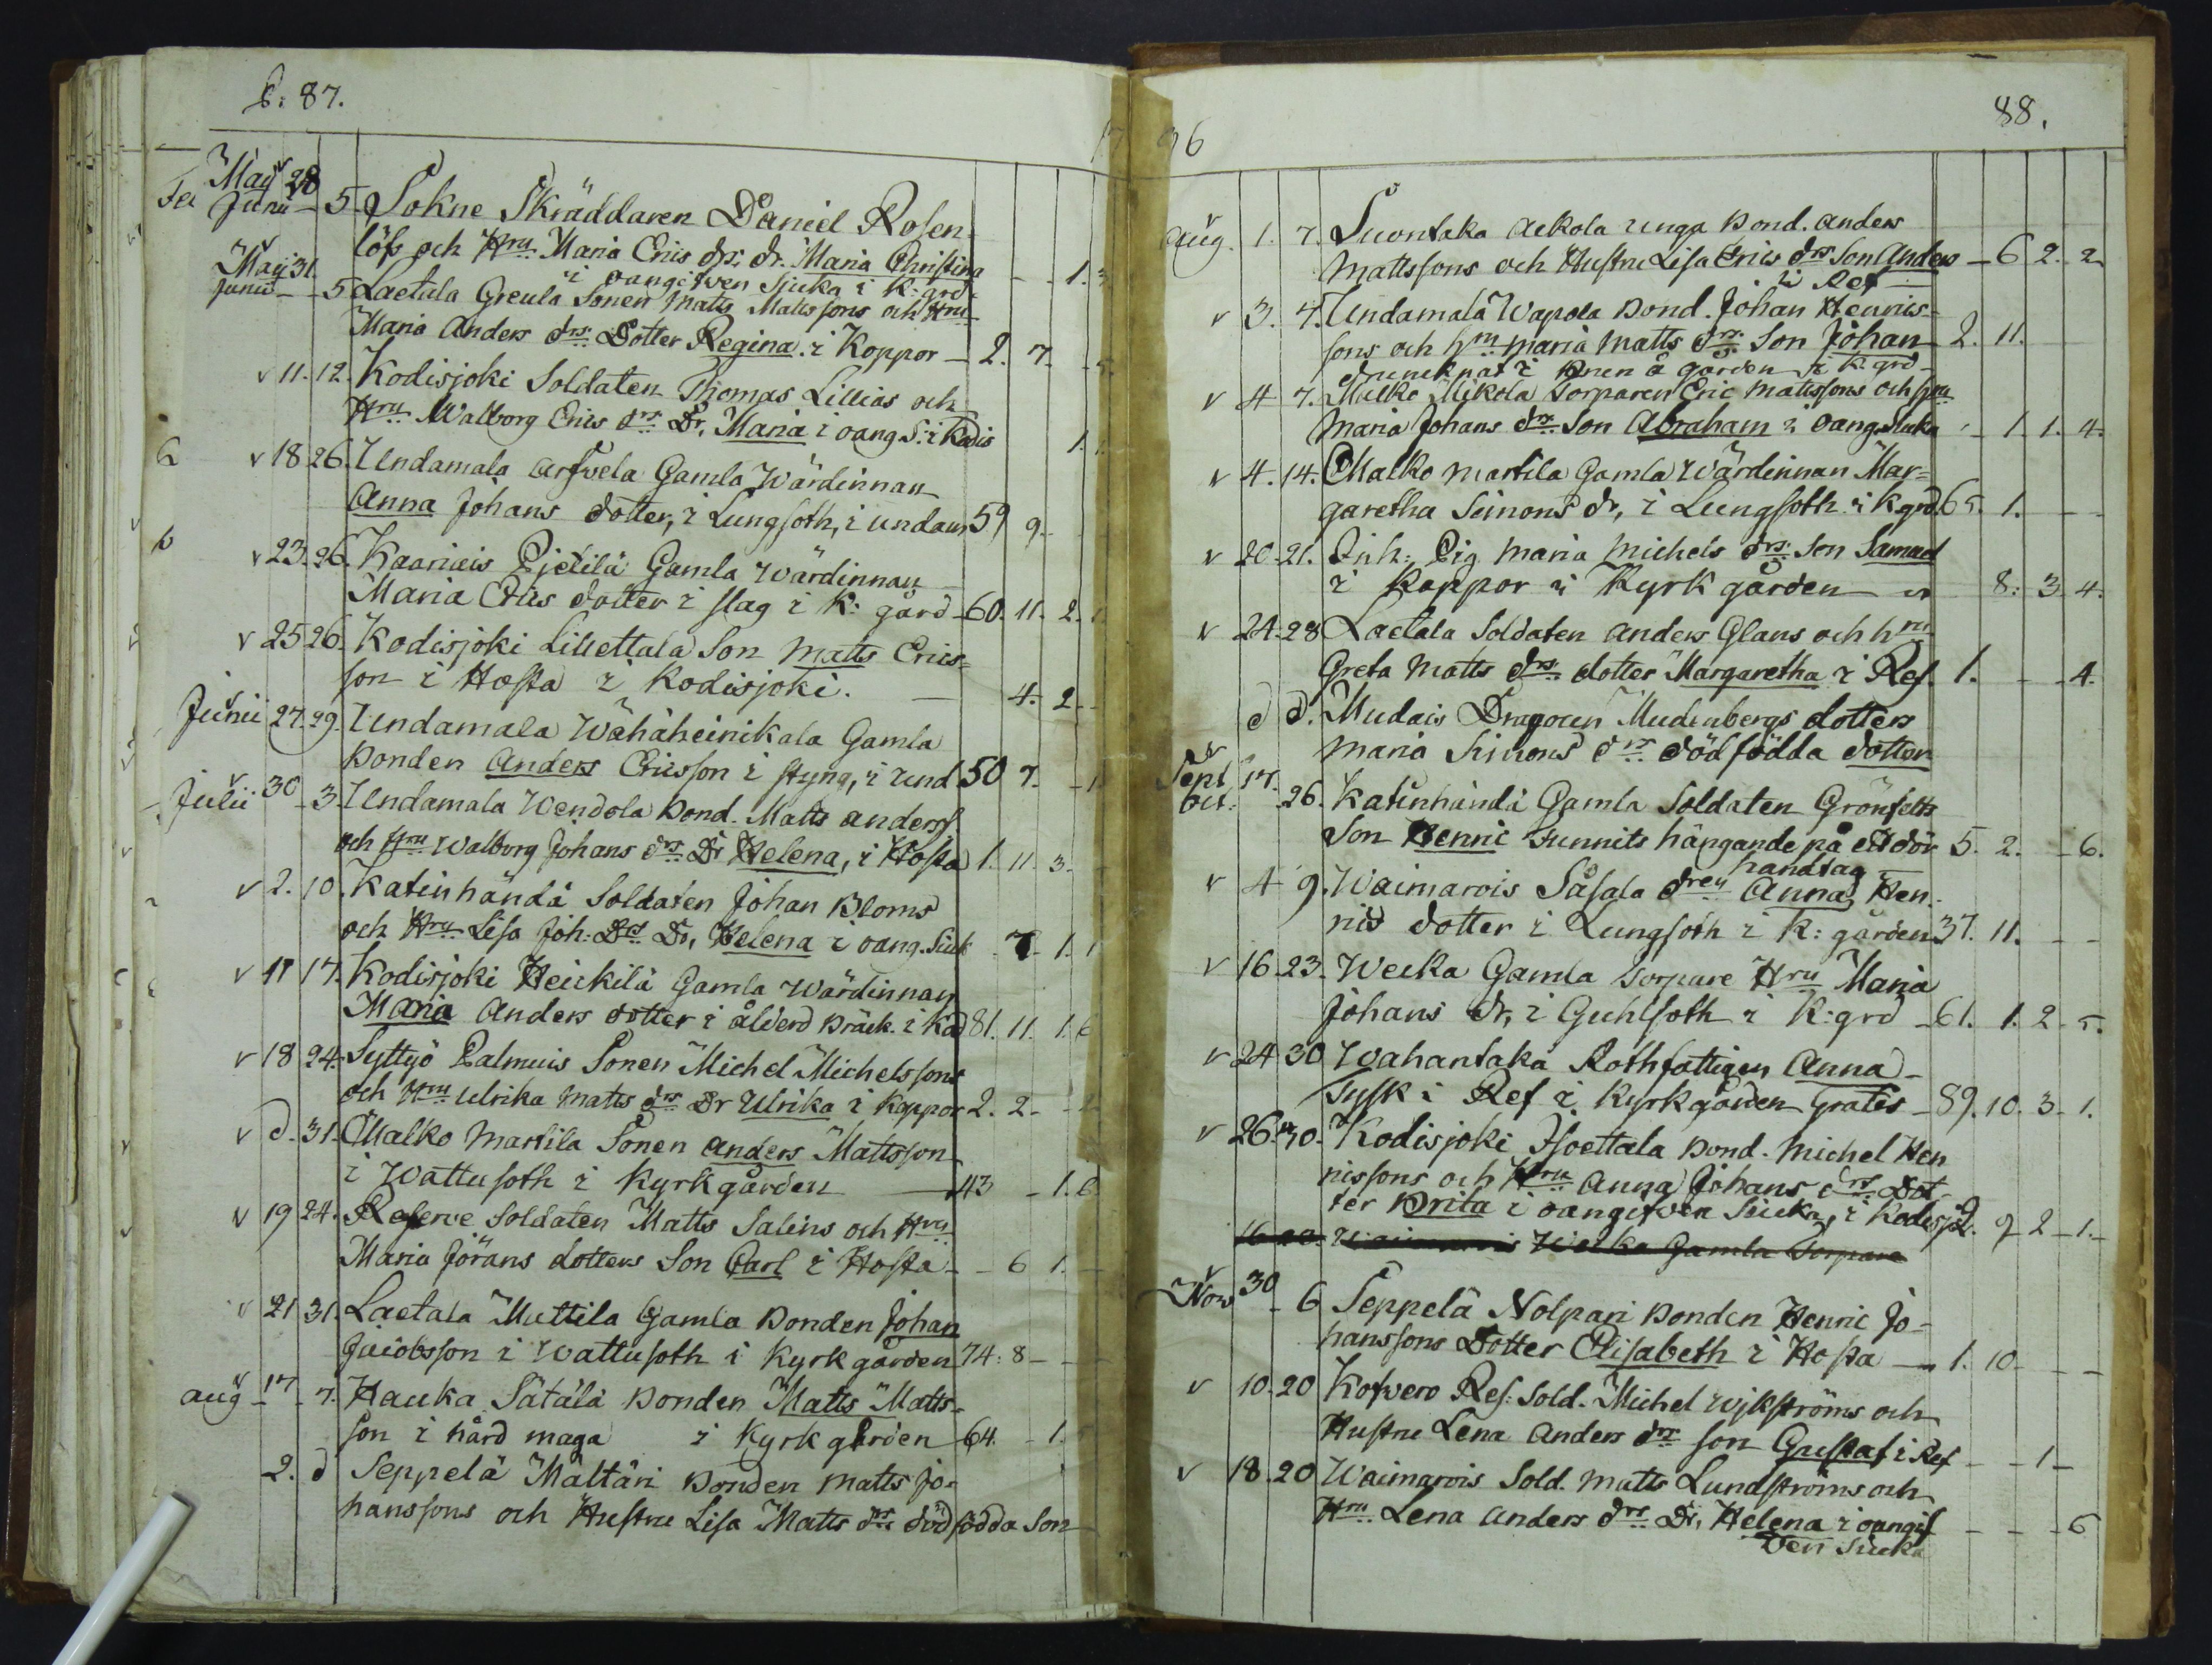 P: 87.
17
Maij 28
Junii - 5. Sokne Skräddaren Daniel Rosen-
löfs och Hru Maria Erics drs. dr. Maria Christina - - 1. 3
i oangifwen Sjuka i K: grd
Maij 31.
Junii - 5 Laetala Greula Sonen Matts Mattssons och Hru
Maria Anders drs Dotter Regina i Koppor - 2. 7. - 5.
v 11. 12. Kodisjoki Soldaten Thomas Lillias och
Hru Walborg Erics drs Dr. Maria i oang S: i Kodis 1. 1
v 18 26. Undamala Arfwela Gamla Wärdinnan
Anna Johans dotter, i Lungsoth, i undam 59 9.
v 23. 26. Kaariais Pjetilä Gamla Wärdinnan
Maria Erics dotter i slag i K: gård 60. 11. 2. 1
v 25 26. Kodisjoki Lillettala Son Matts Erics-
son i Hosta i Kodisjoki. 4. 2
Junii 27. 29. Undamala Wähäheinikala Gamla
Bonden Anders Ericsson i styng, i und 50 7. - 1
Julii 30 - 3. Undamala Wendola Bond. Matts Anderss.
och Hru Walborg Johans drs Dr Helena, i Hosta 1. 11. 3.
v 2. 10. Katinhändä Soldaten Johan Bloms
och Hru Lisa Joh: Drs Dr, Helena i oang. Siuk 7. 1. 1
v 11 17. Kodisjoki Heickilä Gamla Wärdinnan
Maria Anders dotter i ålderd Bräck. i Kod 81. 11. 1. 6
v 18 24. Syttyö Palmuis Sonen Michel Michelssons
och Hru Ulrika Matts drs Dr Ulrika i Koppor 2. 2 - 2
v d. 31. Malko Martila Sonen Anders Mattsson
i Wattusoth i Kyrkgården 43 - 1. 6
v 19 24. Reserve Soldaten Matts Salins och Hru
Maria Jörans dotters Son Carl i Hosta - - 6 1. -
v 21 31. Laetala Muttila Gamla Bonden Johan
Jacobsson i Wattusoth i Kyrkgården 74: 8 - -
Aug - 17 - 7. Hauka Sätälä Bonden Matts Matts-
son i hård maga i Kyrkgården 64. - 1.
2. d Seppelä Mältäri Bonden Matts Jo-
hanssons och Hustru Lisa Matts drs dödfödda Son
96
88.
Aug. 1. 7. Suontaka Aekola unga Bond. Anders
Mattssons och Hustru Lisa Erics drs Son Anders - 6 2. 2
i Ref
v 3. 7. Undamala Wapola Bond. Johan Henrics-
sons och Hru Maria Matts drs Son Johan 2. 11.
druncknat i Bnen å gården i K: grd
v 4 7. Malko Mikola Torparen Eric Mattssons och Hru
Maria Johans drs Son Abraham i oang. Siuka - 1. 1. 4.
v 4. 14. Malko Martila Gamla Wärdinnan Mar-
garetha Simons dr, i Lungsoth i K grd 65. 1. - -
v 20. 21. Inh: Pig. Maria Michels drs Son Samuel
i Koppor i Kyrkgården 8: 3. 4.
v 24. 28 Laetala Soldaten Anders Glans och Hru
Greta Matts drs dotter Margaretha i Ref. 1. - - 4.
d d. Mudais Dragoun Mudenbergs dotters
Maria Simons drs dödfödda dotter
Sept 17.
Oct. 26. Katinhändä Gamla Soldaten Grönfelts
Son Henric Funnits hängande på ett dör 5. 2. - 6.
handtag
v 4 9. Waimarois Såsala dren Anna Hen-
rics dotter i Lungsoth i K: gården 37. 11. - -
v 16. 23. Wecka Gamla Torpare Hru Maria
Johans Dr, i Guhlsoth i K: grd - 61. 1. 2 - 5.
v 24 30 Wahantaka Rothfattigen Anna
Tysk i Ref i Kyrkgården Gratis - 89. 10. 3. 1.
v 26. 30. Kodisjoki Isoettala Bond. Michel Hen
ricssons och Hru Anna Johans drs Dot-
ter Brita i oangifwen Siuka, i Kodisj 2. 9 2 - 1.
Wecka Gamla Torpare
Nov 30 - 6 Seppelä Nolpari Bonden Henric Jo-
hanssons Dotter Elisabeth i Hosta - 1. 10 - -
v 10. 20 Kofvero Res: Sold. Michel Wjkströms och
Hustru Lena Anders drs Son Gustaf i Ref - - 1 -
v 18. 20 Waimarois Sold. Matts Lundströms och
Hru Lena Anders drs Dr. Helena i oangif - - - 6
ven Siuka